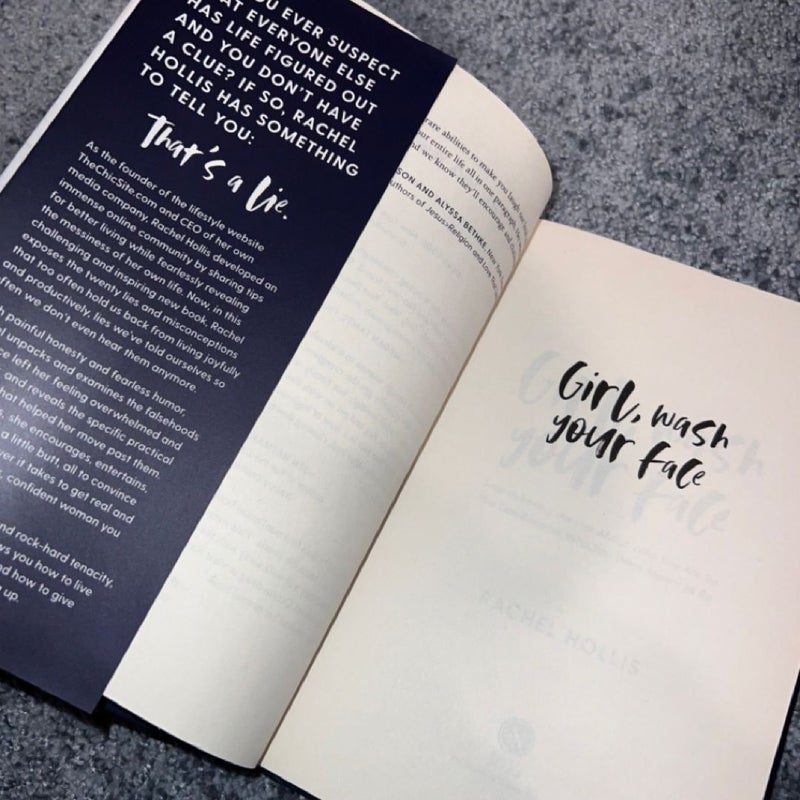 U EVER SUSPECT
AT EVERYONE ELSE
HAS LIFE FIGURED OUT
AND YOU DON'T HAVE
A CLUE? IF SO, RACHEL
HOLLIS HAS SOMETHING
TO TELL YOU:
That's a lie.
As the founder of the lifestyle website
TheChicSite.com and CEO of her own
media company, Rachel Hollis developed an
immense online community by sharing tips
for better living while fearlessly revealing
the messiness of her own life. Now, in this
challenging and inspiring new book, Rachel
exposes the twenty lies and misconceptions
that too often hold us back from living joyfully
and productively, lies we've told ourselves so
ften we don't even hear them anymore.
h painful honesty and fearless humor,
l unpacks and examines the falsehoods
ce left her feeling overwhelmed and
and reveals the specific practical
hat helped her move past them.
s, she encourages, entertains,
a little butt, all to convince
ver it takes to get real and
, confident woman you
nd rock-hard tenacity,
ws you how to live
nd how to give
up.
rare abilities to make you laugh
our entire life all in one paragraph.
nd we know they'll encourage and
SON AND ALYSSA BETHKE, New York
authors of Jesus>Religion and Love That
Girl, wash
your face
Girl, wash
your face
RACHEL HOLLIS